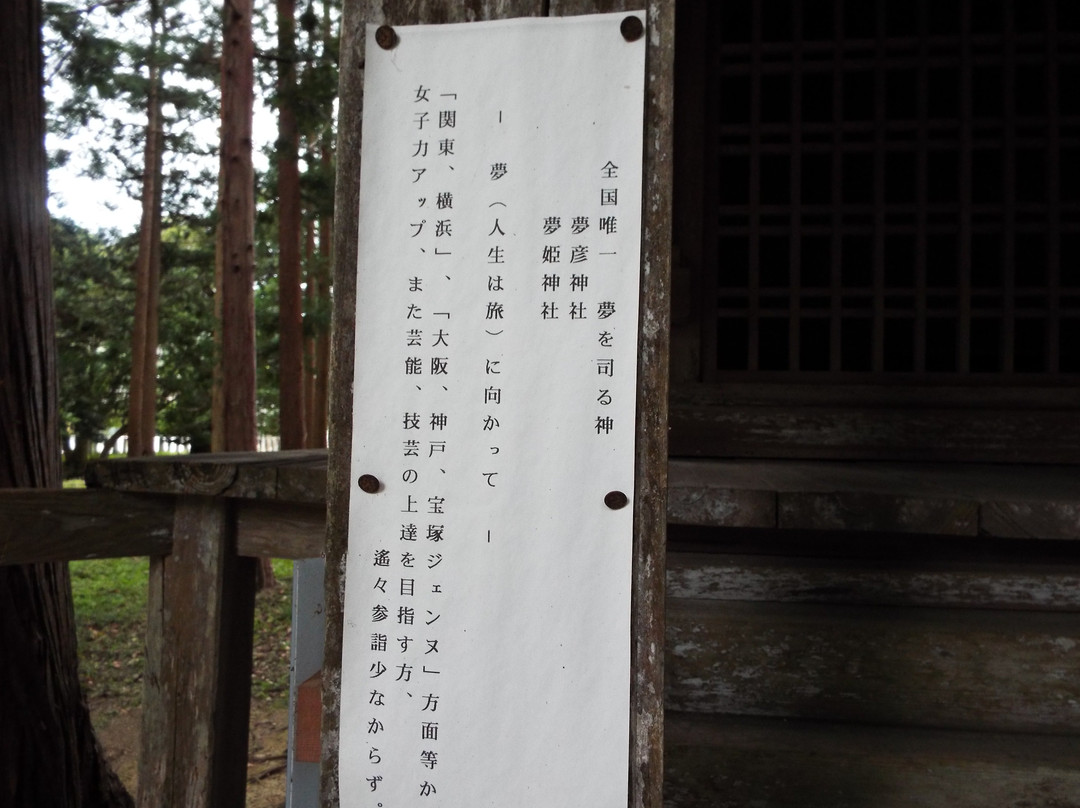 全国唯一　夢を司る神
夢彦神社
夢姫神社
― 夢（人生は旅）に向かって ―
「関東、横浜」、「大阪、神戸、宝塚ジェンヌ」方面等か
女子力アップ、また芸能、技芸の上達を目指す方、
遙々参詣少なからず。